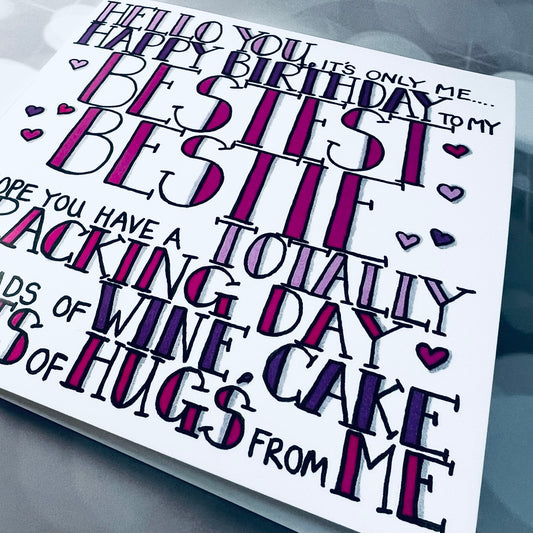 HELLO YOU, IT'S ONLY ME....
HAPPY BIRTHDAY TO MY
BESTEST
BESTIE
OPE YOU HAVE A TOTALLY
PACKING DAY
ADS OF WINE, CAKE
TS OF HUGS FROM ME